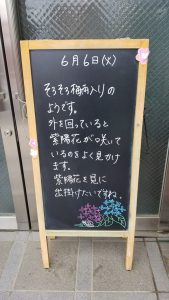 6月6日(火)
そろそろ梅雨入りの
ようです。
外を回っていると
紫陽花が咲いて
いるのをよく見かけ
ます。
紫陽花を見に
出掛けたいですね。